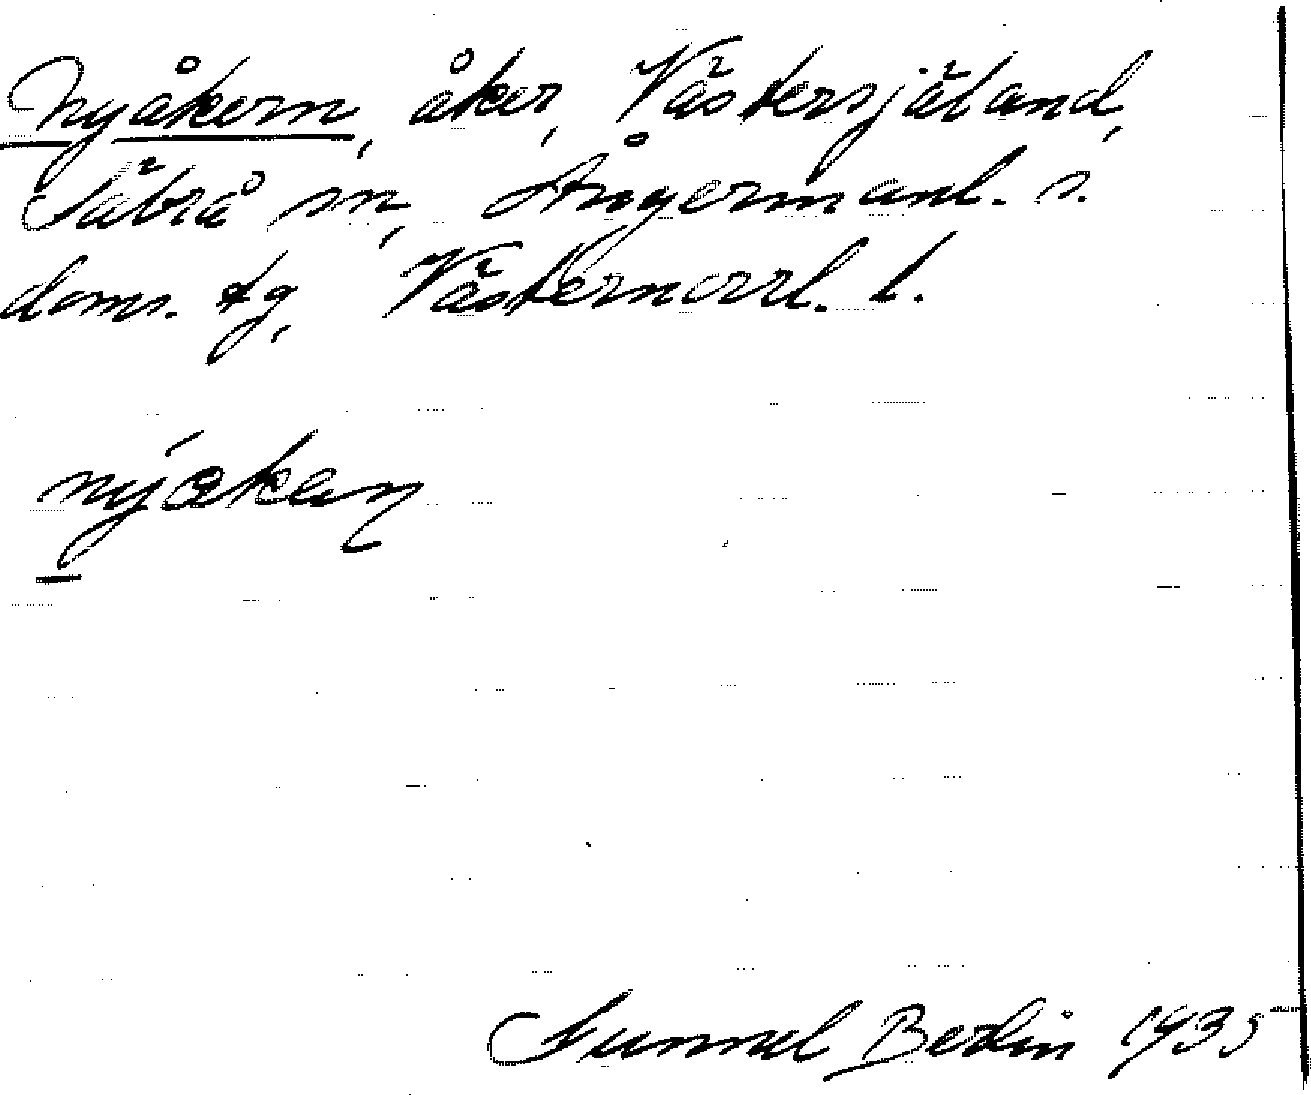 Nyåkern, åker, Västersjäland,
Säbrå sn, Ångermanl. s.
doms. tg, Västernorrl. l.
nýåkeɳ
Gunnel Bedin 1935